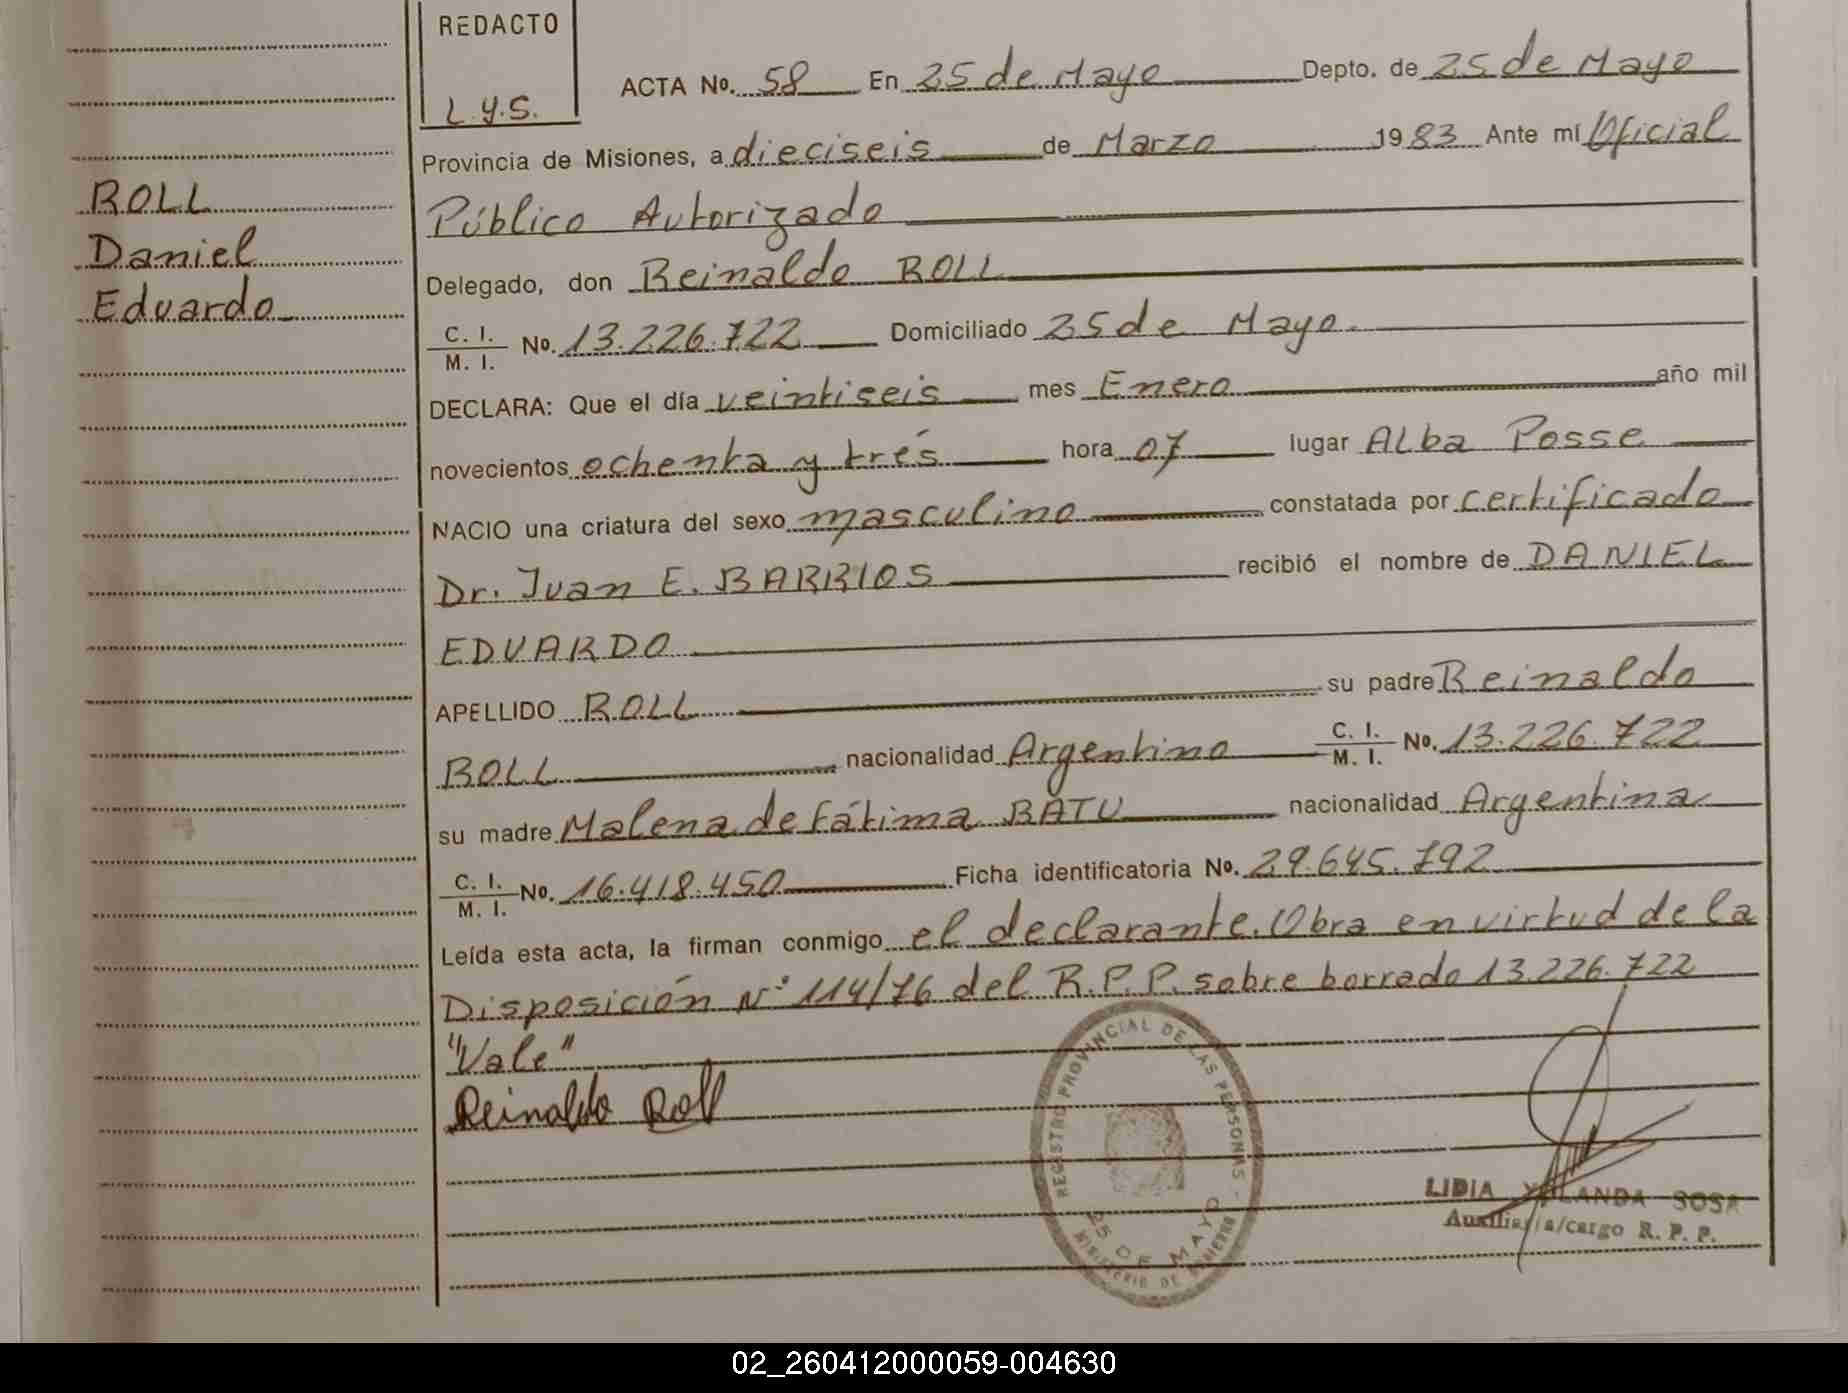 REDACTO
L.Y.S.
ROLL
Daniel
Eduardo
ACTA No. 58 En 25 de Mayo Depto. de 25 de Mayo
Provincia de Misiones, a dieciseis de Marzo 1983 Ante mí Oficial
Público Autorizado
Delegado, don Reinaldo ROLL
C. I. / M. I. No. 13.226.722 Domiciliado 25 de Mayo.
DECLARA: Que el día veintiseis mes Enero año mil
novecientos ochenta y trés hora 07 lugar Alba Posse
NACIO una criatura del sexo masculino constatada por certificado
Dr. Juan E. BARRIOS recibió el nombre de DANIEL
EDUARDO
APELLIDO ROLL su padre Reinaldo
ROLL nacionalidad Argentino C. I. / M. I. No. 13.226.722
su madre Malena de Fátima BATU nacionalidad Argentina
C. I. / M. I. No. 16.418.450 Ficha identificatoria No. 29.645.792
Leída esta acta, la firman conmigo el declarante. Obra en virtud de la
Disposición N° 114/76 del R.P.P. sobre borrado 13.226.722
"Vale"
Reinaldo Roll
REGISTRO PROVINCIAL DE LAS PERSONAS -
25 DE MAYO
MINISTERIO DE GOBIERNO
LIDIA YOLANDA SOSA
Auxiliar a/cargo R. P. P.
02_260412000059-004630